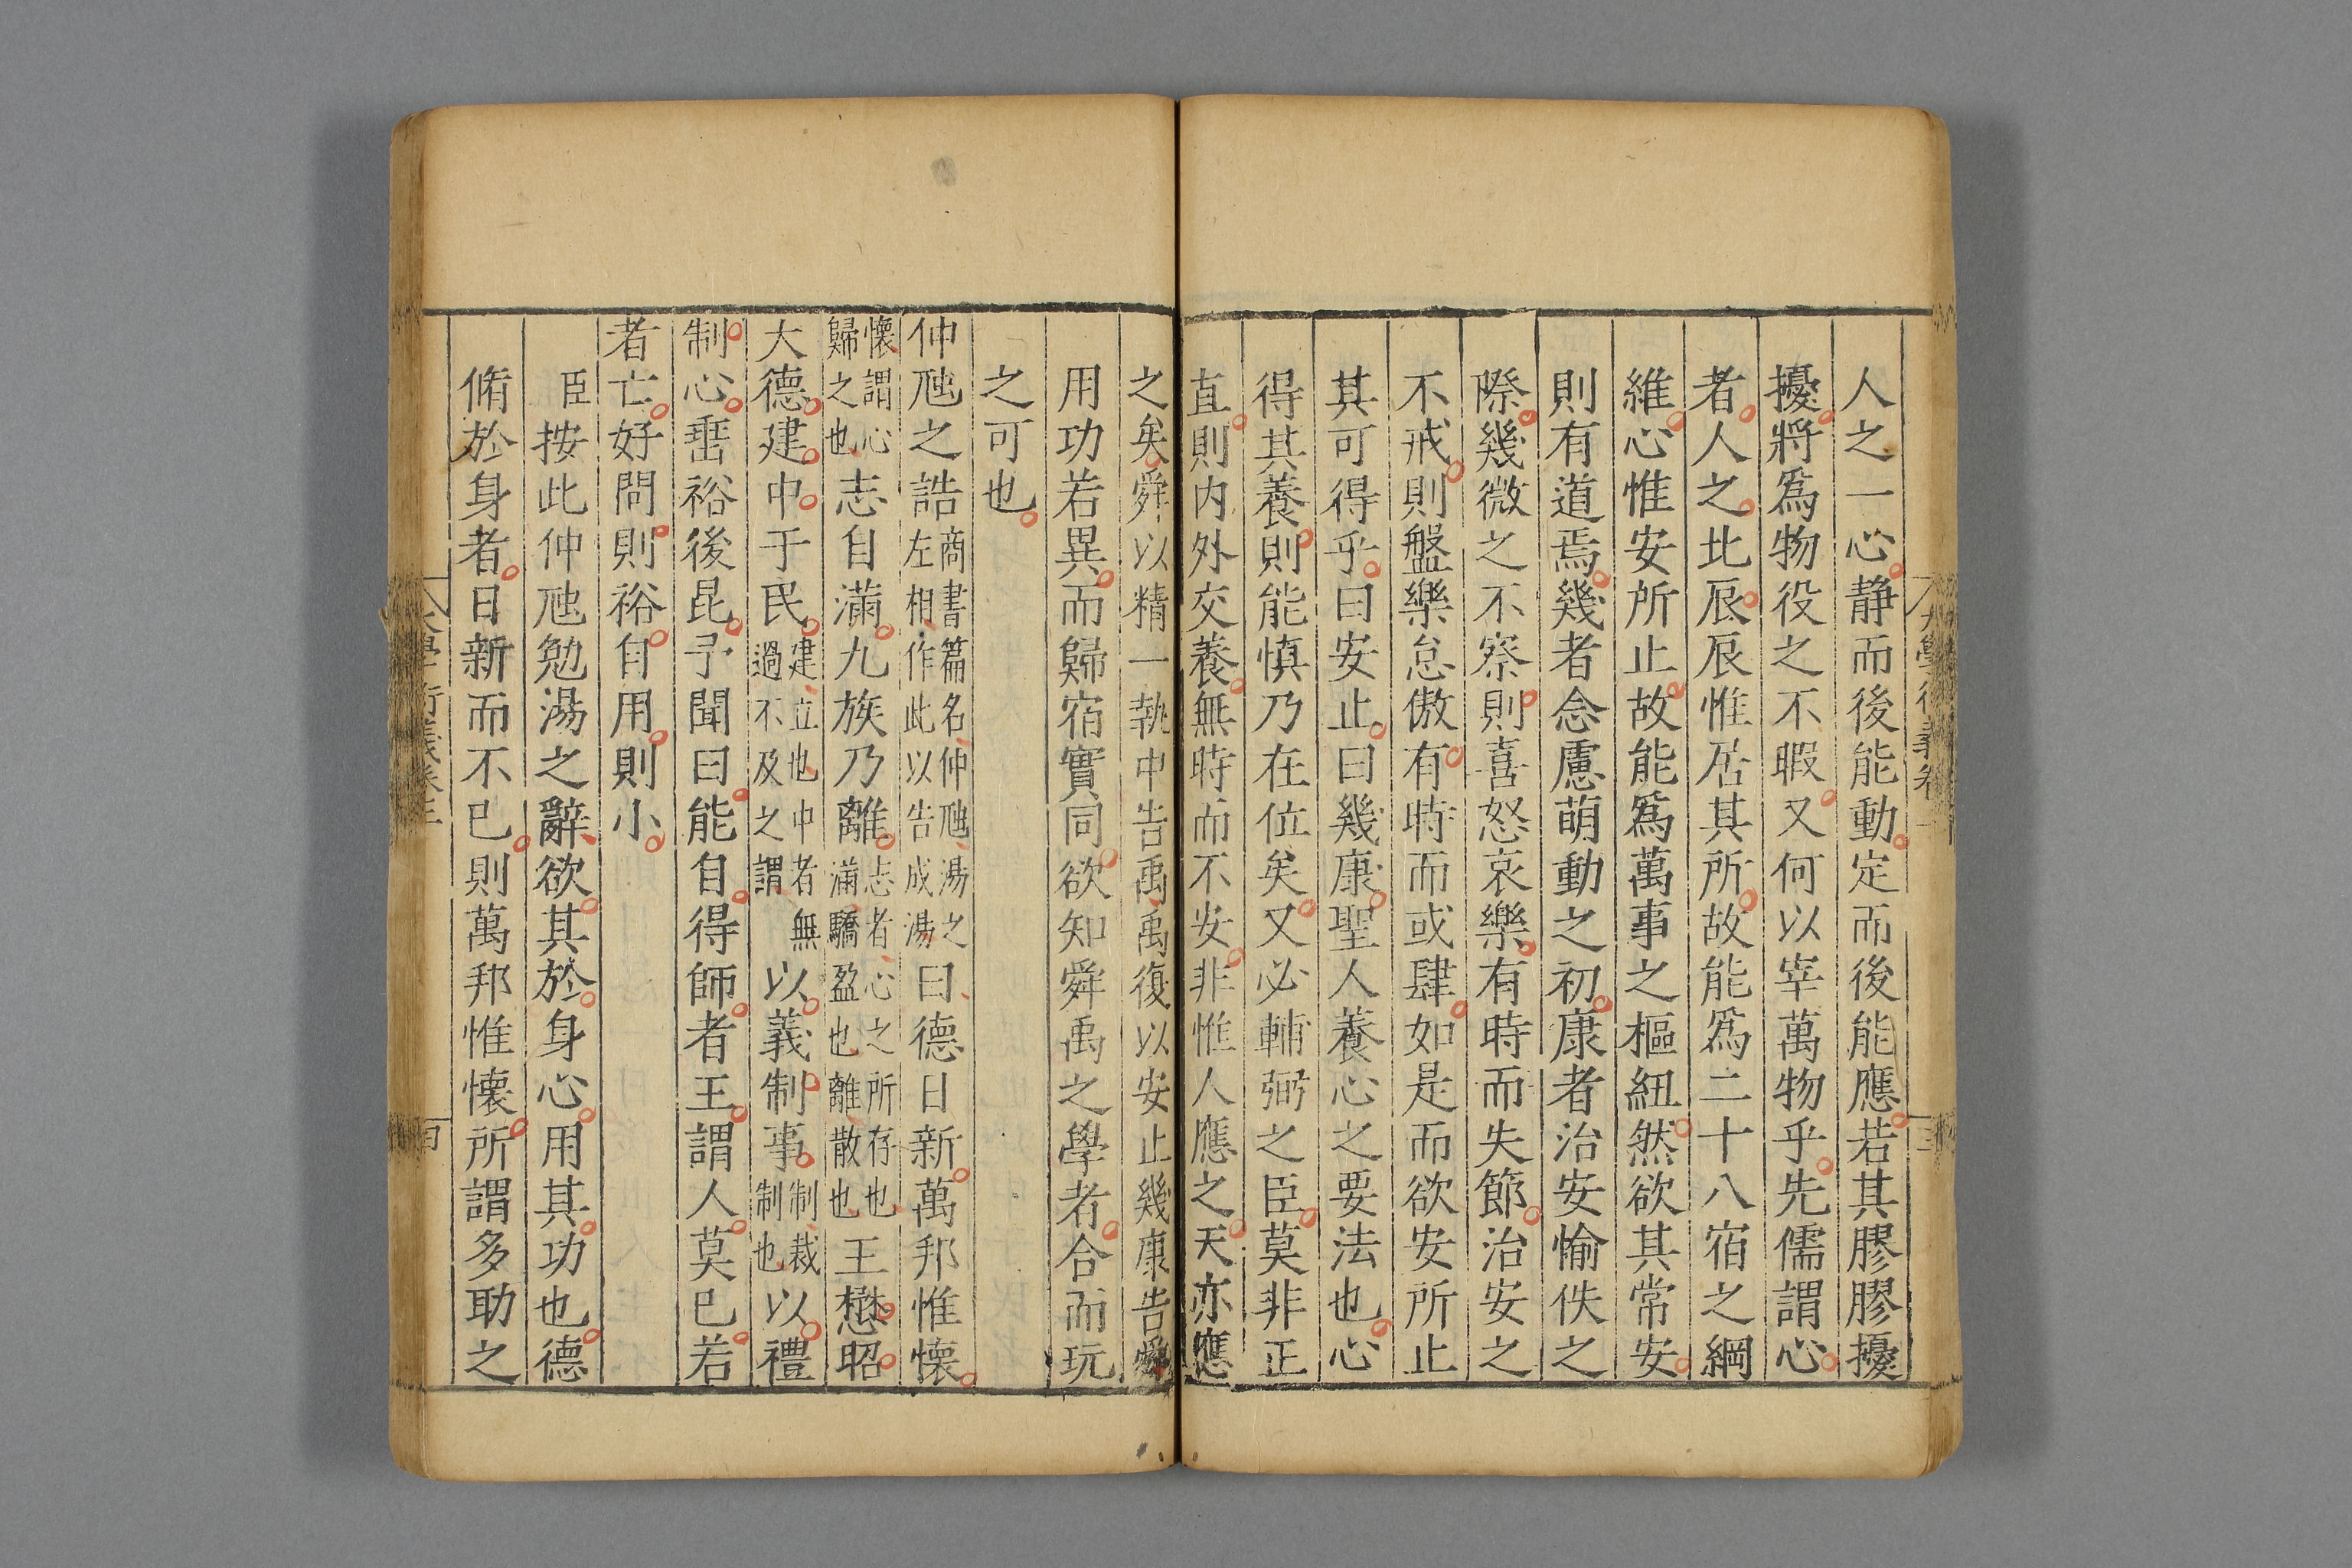 人之一心静而後能動定而後能應若其膠膠擾
擾將爲物役之不暇又何以宰萬物乎先儒謂心
者人之北辰辰惟居其所故能爲二十八宿之綱
維心惟安所止故能爲萬事之樞紐然欲其常安
則有道焉幾者念慮萌動之初康者治安愉佚之
際幾微之不察則喜怒哀樂有時而失節治安之
不戒則盤樂怠傲有時而或肆如是而欲安所止
其可得乎曰安止曰幾康聖人養心之要法也心
得其養則能慎乃在位矣又必輔弼之臣莫非正
直則内外交養無時而不安非惟人應之天亦應
之矣舜以精一執中告禹禹復以安止幾康告舜
用功若異而歸宿實同欲知舜禹之學者合而玩
之可也
仲虺之誥商書篇名仲虺湯之左相作此以告成湯曰德日新萬邦惟懷
懷謂心歸之也志自滿九族乃離志者心之所存也滿驕盈也離散也王懋昭
大德建中于民建立也中者無過不及之謂以義制事制裁制也以禮
制心垂裕後昆予聞曰能自得師者王謂人莫已若
者亡好問則裕自用則小
臣按此仲虺勉湯之辭欲其於身心用其功也德
脩於身者日新而不已則萬邦惟懷所謂多助之
大學衍義卷三
四